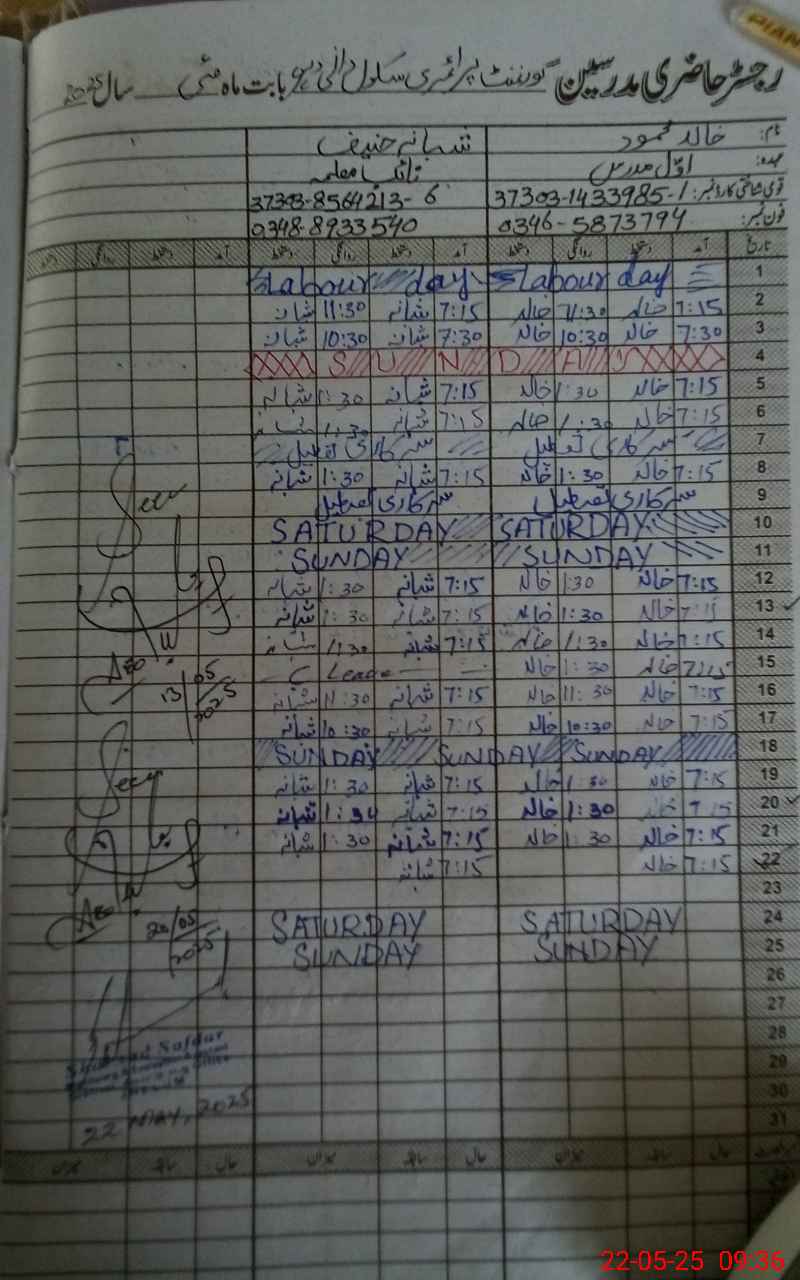 PIAN
رجسٹر حاضری مدرسین گورنمنٹ پرائمری سکول بابت ماہ مئی سال
نام: خالد محمود شبانہ حنیف
عہدہ: اوّل مدرس نائب معلمہ
قومی شناختی کارڈ نمبر: 37303-1433985-1 37303-8564213-6
فون نمبر: 0346-5873794 0348-8933540
تاریخ آمد دستخط روانگی دستخط آمد دستخط روانگی دستخط آمد روانگی
1 Labour day Labour day
2 7:15 خالد 11:30 خالد 7:15 شبانہ 11:30 شبانہ
3 7:30 خالد 10:30 خالد 7:30 شبانہ 10:30 شبانہ
4 SUNDAY
5 7:15 خالد 1:30 خالد 7:15 شبانہ 1:30 شبانہ
6 7:15 خالد 1:30 خالد 7:15 شبانہ 1:30 شبانہ
7 سرکاری تعطیل سرکاری تعطیل
8 7:15 خالد 1:30 خالد 7:15 شبانہ 1:30 شبانہ
9 سرکاری تعطیل سرکاری تعطیل
10 SATURDAY SATURDAY
11 SUNDAY SUNDAY
12 7:15 خالد 1:30 خالد 7:15 شبانہ 1:30 شبانہ
13 7:15 خالد 1:30 خالد 7:15 شبانہ 1:30 شبانہ
14 7:15 خالد 1:30 خالد 7:15 شبانہ 1:30 شبانہ
15 7:15 خالد 1:30 خالد C Leave
16 7:15 خالد 11:30 خالد 7:15 شبانہ 11:30 شبانہ
17 7:15 خالد 10:30 خالد 7:15 شبانہ 10:30 شبانہ
18 SUNDAY SUNDAY SUNDAY
19 7:15 خالد 1:30 خالد 7:15 شبانہ 1:30 شبانہ
20 7:15 خالد 1:30 خالد 7:15 شبانہ 1:30 شبانہ
21 7:15 خالد 1:30 خالد 7:15 شبانہ 1:30 شبانہ
22 7:15 خالد 7:15 شبانہ
23
24 SATURDAY SATURDAY
25 SUNDAY SUNDAY
26
27
28
29
30
31
Seen
AEO
13/05/2025
Seen
AEO
20/05/2025
22 MAY, 2025
حال سابقہ میزان حال سابقہ میزان
22-05-25 09:36